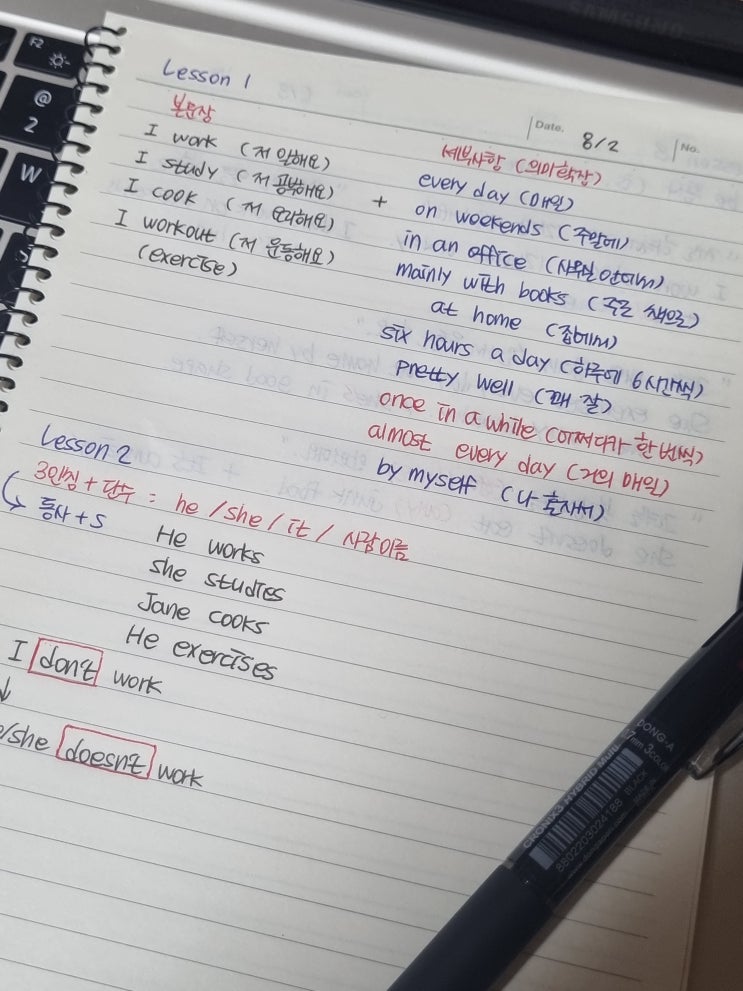 Lesson 1
Date. 8/2 No.
본문장
I work (저 일해요)
I study (저 공부해요)
I cook (저 요리해요)
I workout (저 운동해요)
(exercise)
+
세부사항 (의미확장)
every day (매일)
on weekends (주말에)
in an office (사무실 안에서)
mainly with books (주로 책으로)
at home (집에서)
six hours a day (하루에 6시간씩)
pretty well (꽤 잘)
once in a while (어쩌다가 한번씩)
almost every day (거의 매일)
by myself (나 혼자서)
Lesson 2
3인칭 + 단수 : he / she / it / 사람이름
↳ 동사 + s
He works
she studies
Jane cooks
He exercises
I don't work
↓
/she doesn't work
SAMSUNG
F2
@
2
W
DONG-A
CRONIX3 HYBRID
8802203024188
BLACK